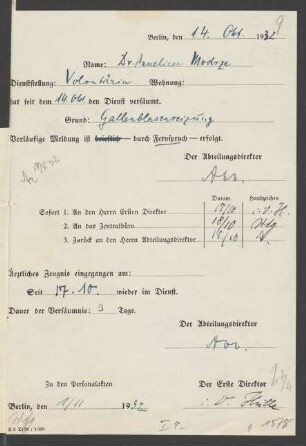 9
Berlin, den 14. Okt. 1932
Name: Dr. Anneliese Modrze
Dienststellung: Volontärin Wohnung:
hat seit dem 14. Okt. den Dienst versäumt.
Grund: Gallenblasenreizung
Vorläufige Meldung ist brieflich — durch Fernspruch — erfolgt.
Der Abteilungsdirektor
Datum Handzeichen
Sofort 1. An den Herrn Ersten Direktor 17/10 i. V. H.
2. An das Zentralbüro. 18/10
3. Zurück an den Herrn Abteilungsdirektor
Ärztliches Zeugnis eingegangen am:
Seit 17. 10. wieder im Dienst.
Dauer der Versäumnis: 3 Tage.
Der Abteilungsdirektor
Zu den Personalakten Der Erste Direktor
Berlin, den 1/11 1932 i. V.